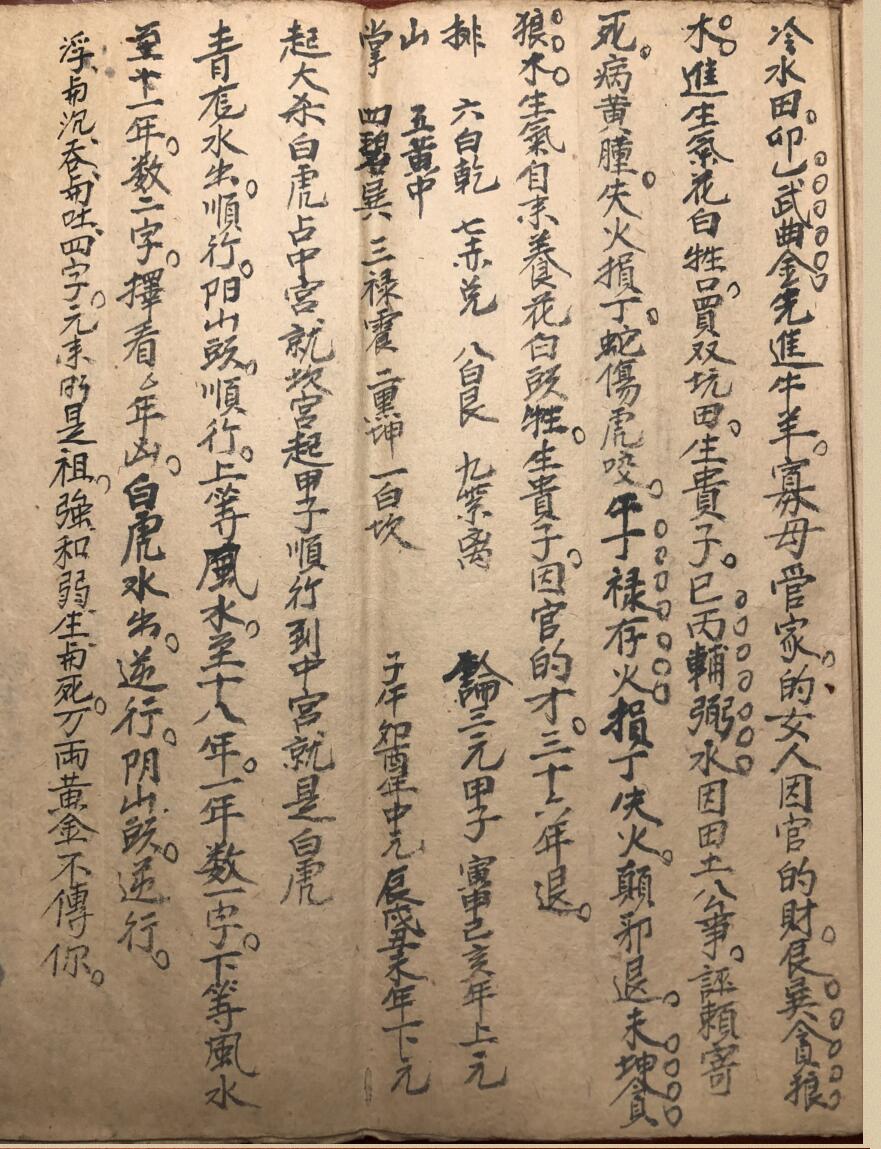 冷水田。卯乙武曲金先進牛羊。寡母管家。的女人因官的財。辰巽貪狼
木。進生氣花白牲。買双坑田。生貴子。巳丙輔弼水因田土公事。誣賴寄
死。病黄腫。失火損丁。蛇傷虎咬。午丁禄存火損丁失火。顛邪退。未坤貪
狼木生氣自来養花白頭牲。生貴子。因官的才。三十六年退。
排 六白乾 七赤兑 八白艮 九紫离 論三元甲子 寅申己亥年上元
山 五黄中
掌 四碧巽 三禄震 二黑坤 一白坎 子午卯酉年中元 辰戌丑未年下元
起大杀白虎占中宮就坎宮起甲子順行到中宮就是白虎
青龙水出。順行。阳山頭。順行。上等風水。至十八年。一年数一字。下等風水
至十一年。数二字。擇看么年凶。白虎水出。逆行。阴山頭。逆行。
浮与沉、吞与吐、四字。元来所是祖。強和弱、生与死。万両黄金不傳你。